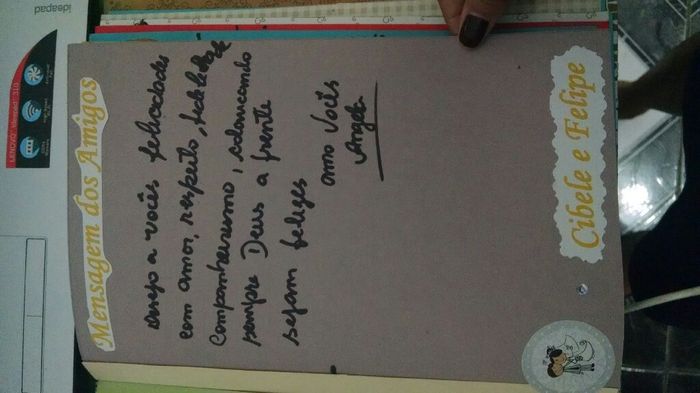 ideapad
LENOVO ideapad 310
Mensagem dos Amigos
desejo a vocês felicidades
com amor, respeito, fidelidade
companheirismo, colocando
sempre Deus a frente
sejam felizes
amo vocês
Angela
Cibele e Felipe